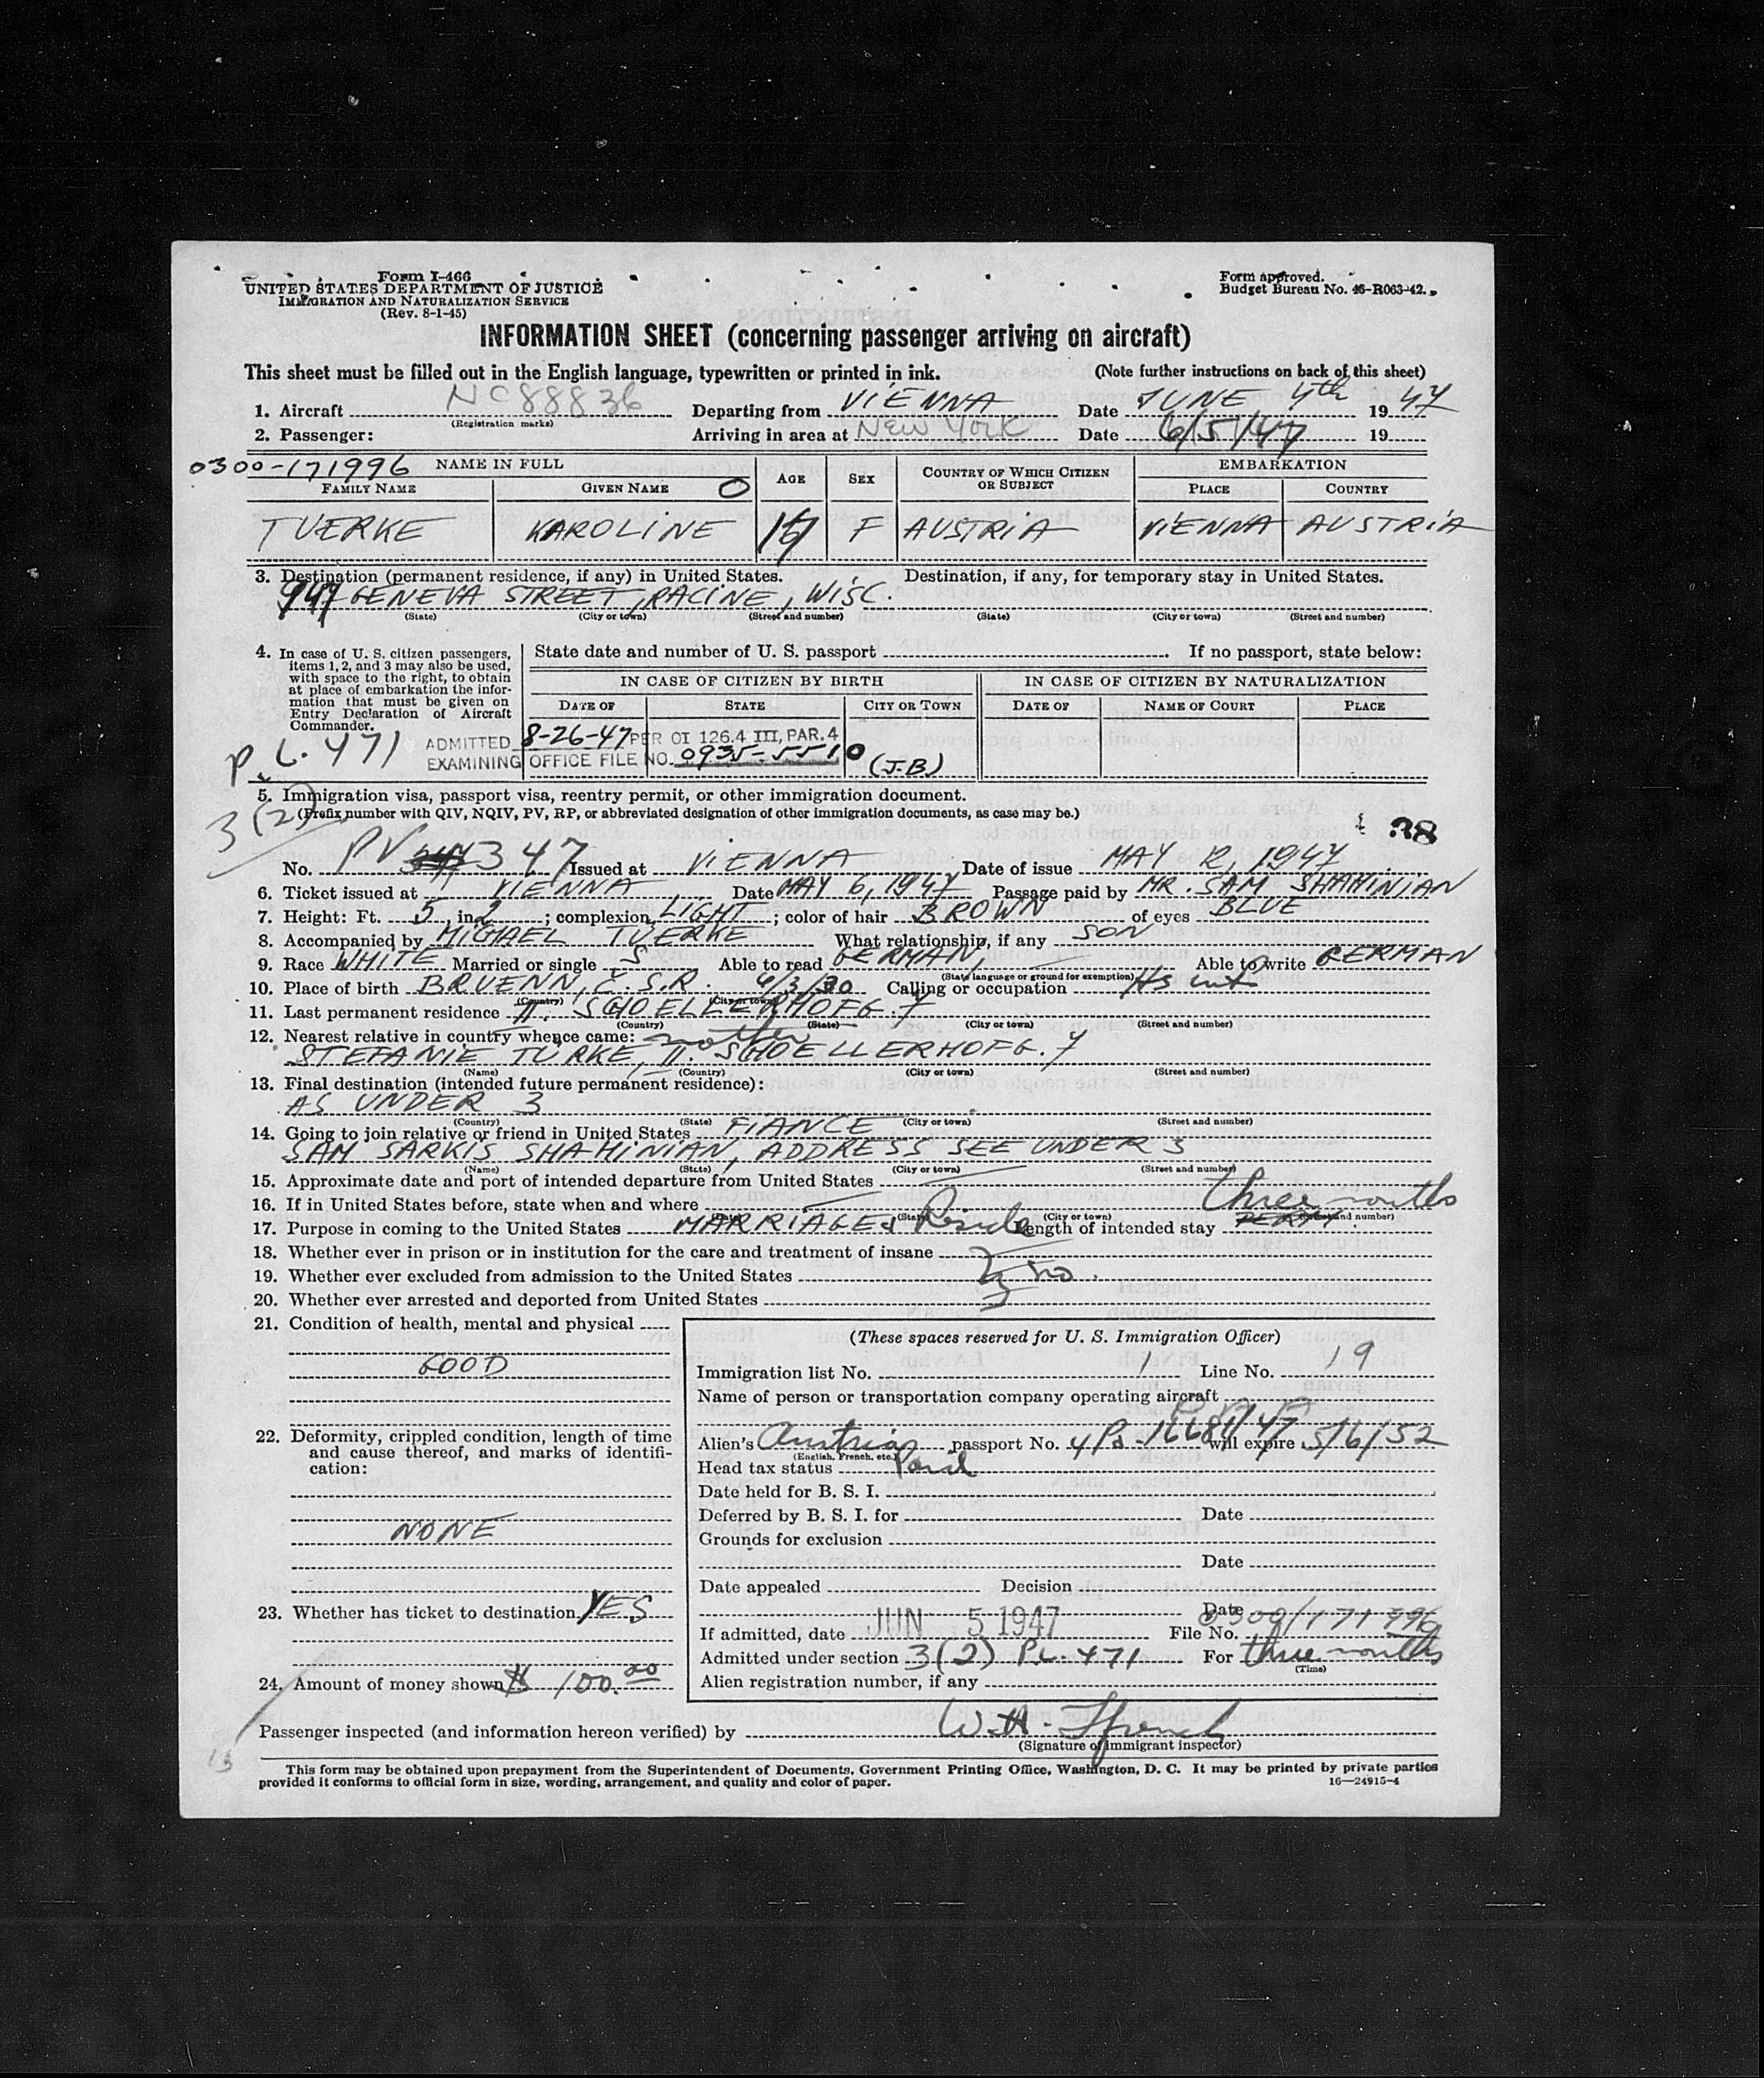 Form I-466
UNITED STATES DEPARTMENT OF JUSTICE
IMMIGRATION AND NATURALIZATION SERVICE
(Rev. 8-1-45)
Form approved.
Budget Bureau No. 43-R063-42.
INFORMATION SHEET (concerning passenger arriving on aircraft)
This sheet must be filled out in the English language, typewritten or printed in ink. (Note further instructions on back of this sheet)
1. Aircraft NC88836 Departing from VIENNA Date JUNE 4th 1947
(Registration marks)
2. Passenger: Arriving in area at NEW YORK Date 6/5/47 19
0300-171996 NAME IN FULL AGE SEX COUNTRY OF WHICH CITIZEN OR SUBJECT EMBARKATION
FAMILY NAME GIVEN NAME PLACE COUNTRY
TUERKE KAROLINE F AUSTRIA VIENNA AUSTRIA
3. Destination (permanent residence, if any) in United States. Destination, if any, for temporary stay in United States.
947 GENEVA STREET, RACINE, WISC.
(State) (City or town) (Street and number) (State) (City or town) (Street and number)
4. In case of U. S. citizen passengers, items 1, 2, and 3 may also be used, with space to the right, to obtain at place of embarkation the information that must be given on Entry Declaration of Aircraft Commander.
State date and number of U. S. passport If no passport, state below:
IN CASE OF CITIZEN BY BIRTH IN CASE OF CITIZEN BY NATURALIZATION
DATE OF STATE CITY OR TOWN DATE OF NAME OF COURT PLACE
P.L. 471 ADMITTED 8-26-47 PER OI 126.4 III, PAR. 4
EXAMINING OFFICE FILE NO. 0935-5510 (J.B.)
5. Immigration visa, passport visa, reentry permit, or other immigration document.
3(2) (Prefix number with QIV, NQIV, PV, RP, or abbreviated designation of other immigration documents, as case may be.)
38
No. PV 347 Issued at VIENNA Date of issue MAY 2, 1947
6. Ticket issued at VIENNA Date MAY 6, 1947 Passage paid by MR. SAM SHAHINIAN
7. Height: Ft. 5, in. 2; complexion LIGHT; color of hair BROWN of eyes BLUE
8. Accompanied by MICHAEL TUERKE What relationship, if any SON
9. Race WHITE Married or single S Able to read GERMAN, Able to write GERMAN
(State language or ground for exemption)
10. Place of birth BRUENN, C.S.R. 6/3/30 Calling or occupation
(Country) (City or town)
11. Last permanent residence II. SCHOELLERHOFG. 7
(Country) (State) (City or town) (Street and number)
12. Nearest relative in country whence came: mother
STEFANIE TURKE, II. SCHOELLERHOFG. 7
(Name) (Country) (City or town) (Street and number)
13. Final destination (intended future permanent residence):
AS UNDER 3
(Country) (State) (City or town) (Street and number)
14. Going to join relative or friend in United States FIANCE
SAM SARKIS SHAHINIAN, ADDRESS SEE UNDER 3
(Name) (State) (City or town) (Street and number)
15. Approximate date and port of intended departure from United States
16. If in United States before, state when and where
(State) (City or town) (Street and number)
17. Purpose in coming to the United States MARRIAGE & Reside Length of intended stay three months
18. Whether ever in prison or in institution for the care and treatment of insane
19. Whether ever excluded from admission to the United States no.
20. Whether ever arrested and deported from United States
21. Condition of health, mental and physical
GOOD
22. Deformity, crippled condition, length of time and cause thereof, and marks of identification:
NONE
23. Whether has ticket to destination YES
24. Amount of money shown $ 100.00
(These spaces reserved for U. S. Immigration Officer)
Immigration list No. 1 Line No. 19
Name of person or transportation company operating aircraft
Alien's Austrian passport No. 4Pa-16681/47 will expire 5/6/52
(English, French, etc.)
Head tax status Paid
Date held for B. S. I.
Deferred by B. S. I. for Date
Grounds for exclusion
Date
Date appealed Decision
Date
If admitted, date JUN 5 1947 File No. 0300/171996
Admitted under section 3(2) P.L. 471 For three months
(Time)
Alien registration number, if any
Passenger inspected (and information hereon verified) by
(Signature of immigrant inspector)
This form may be obtained upon prepayment from the Superintendent of Documents, Government Printing Office, Washington, D. C. It may be printed by private parties
provided it conforms to official form in size, wording, arrangement, and quality and color of paper.
16—24915-4